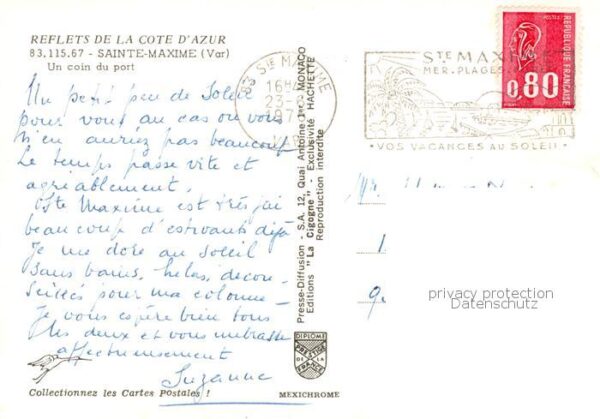 REFLETS DE LA COTE D'AZUR
83.115.67 - SAINTE-MAXIME (Var)
Un coin du port
Un petit peu de Soleil
pour vous au cas ou vous
n'en auriez pas beaucoup
Le temps passe vite et
agréablement.
Ste Maxime est très jai
beaucoup d'estivants déjà
Je me dore au Soleil
Sans bains, helas, decon-
seillés pour ma colonne -
Je vous espère bien tous
les deux et vous embrasse
affectueusement
Suzanne
Collectionnez les Cartes Postales !
Presse-Diffusion - S.A. 12, Quai Antoine 1er MONACO
Editions "La Cigogne" - Exclusivité HACHETTE
Reproduction interdite
DIPLOME
PRESTIGE
DE LA
FRANCE
MEXICHROME
83 STE MAXIME
16H
23-
197
STE MAXIM
MER-PLAGES
VOS VACANCES AU SOLEIL
POSTES
0,80
REPUBLIQUE FRANÇAISE
privacy protection
Datenschutz